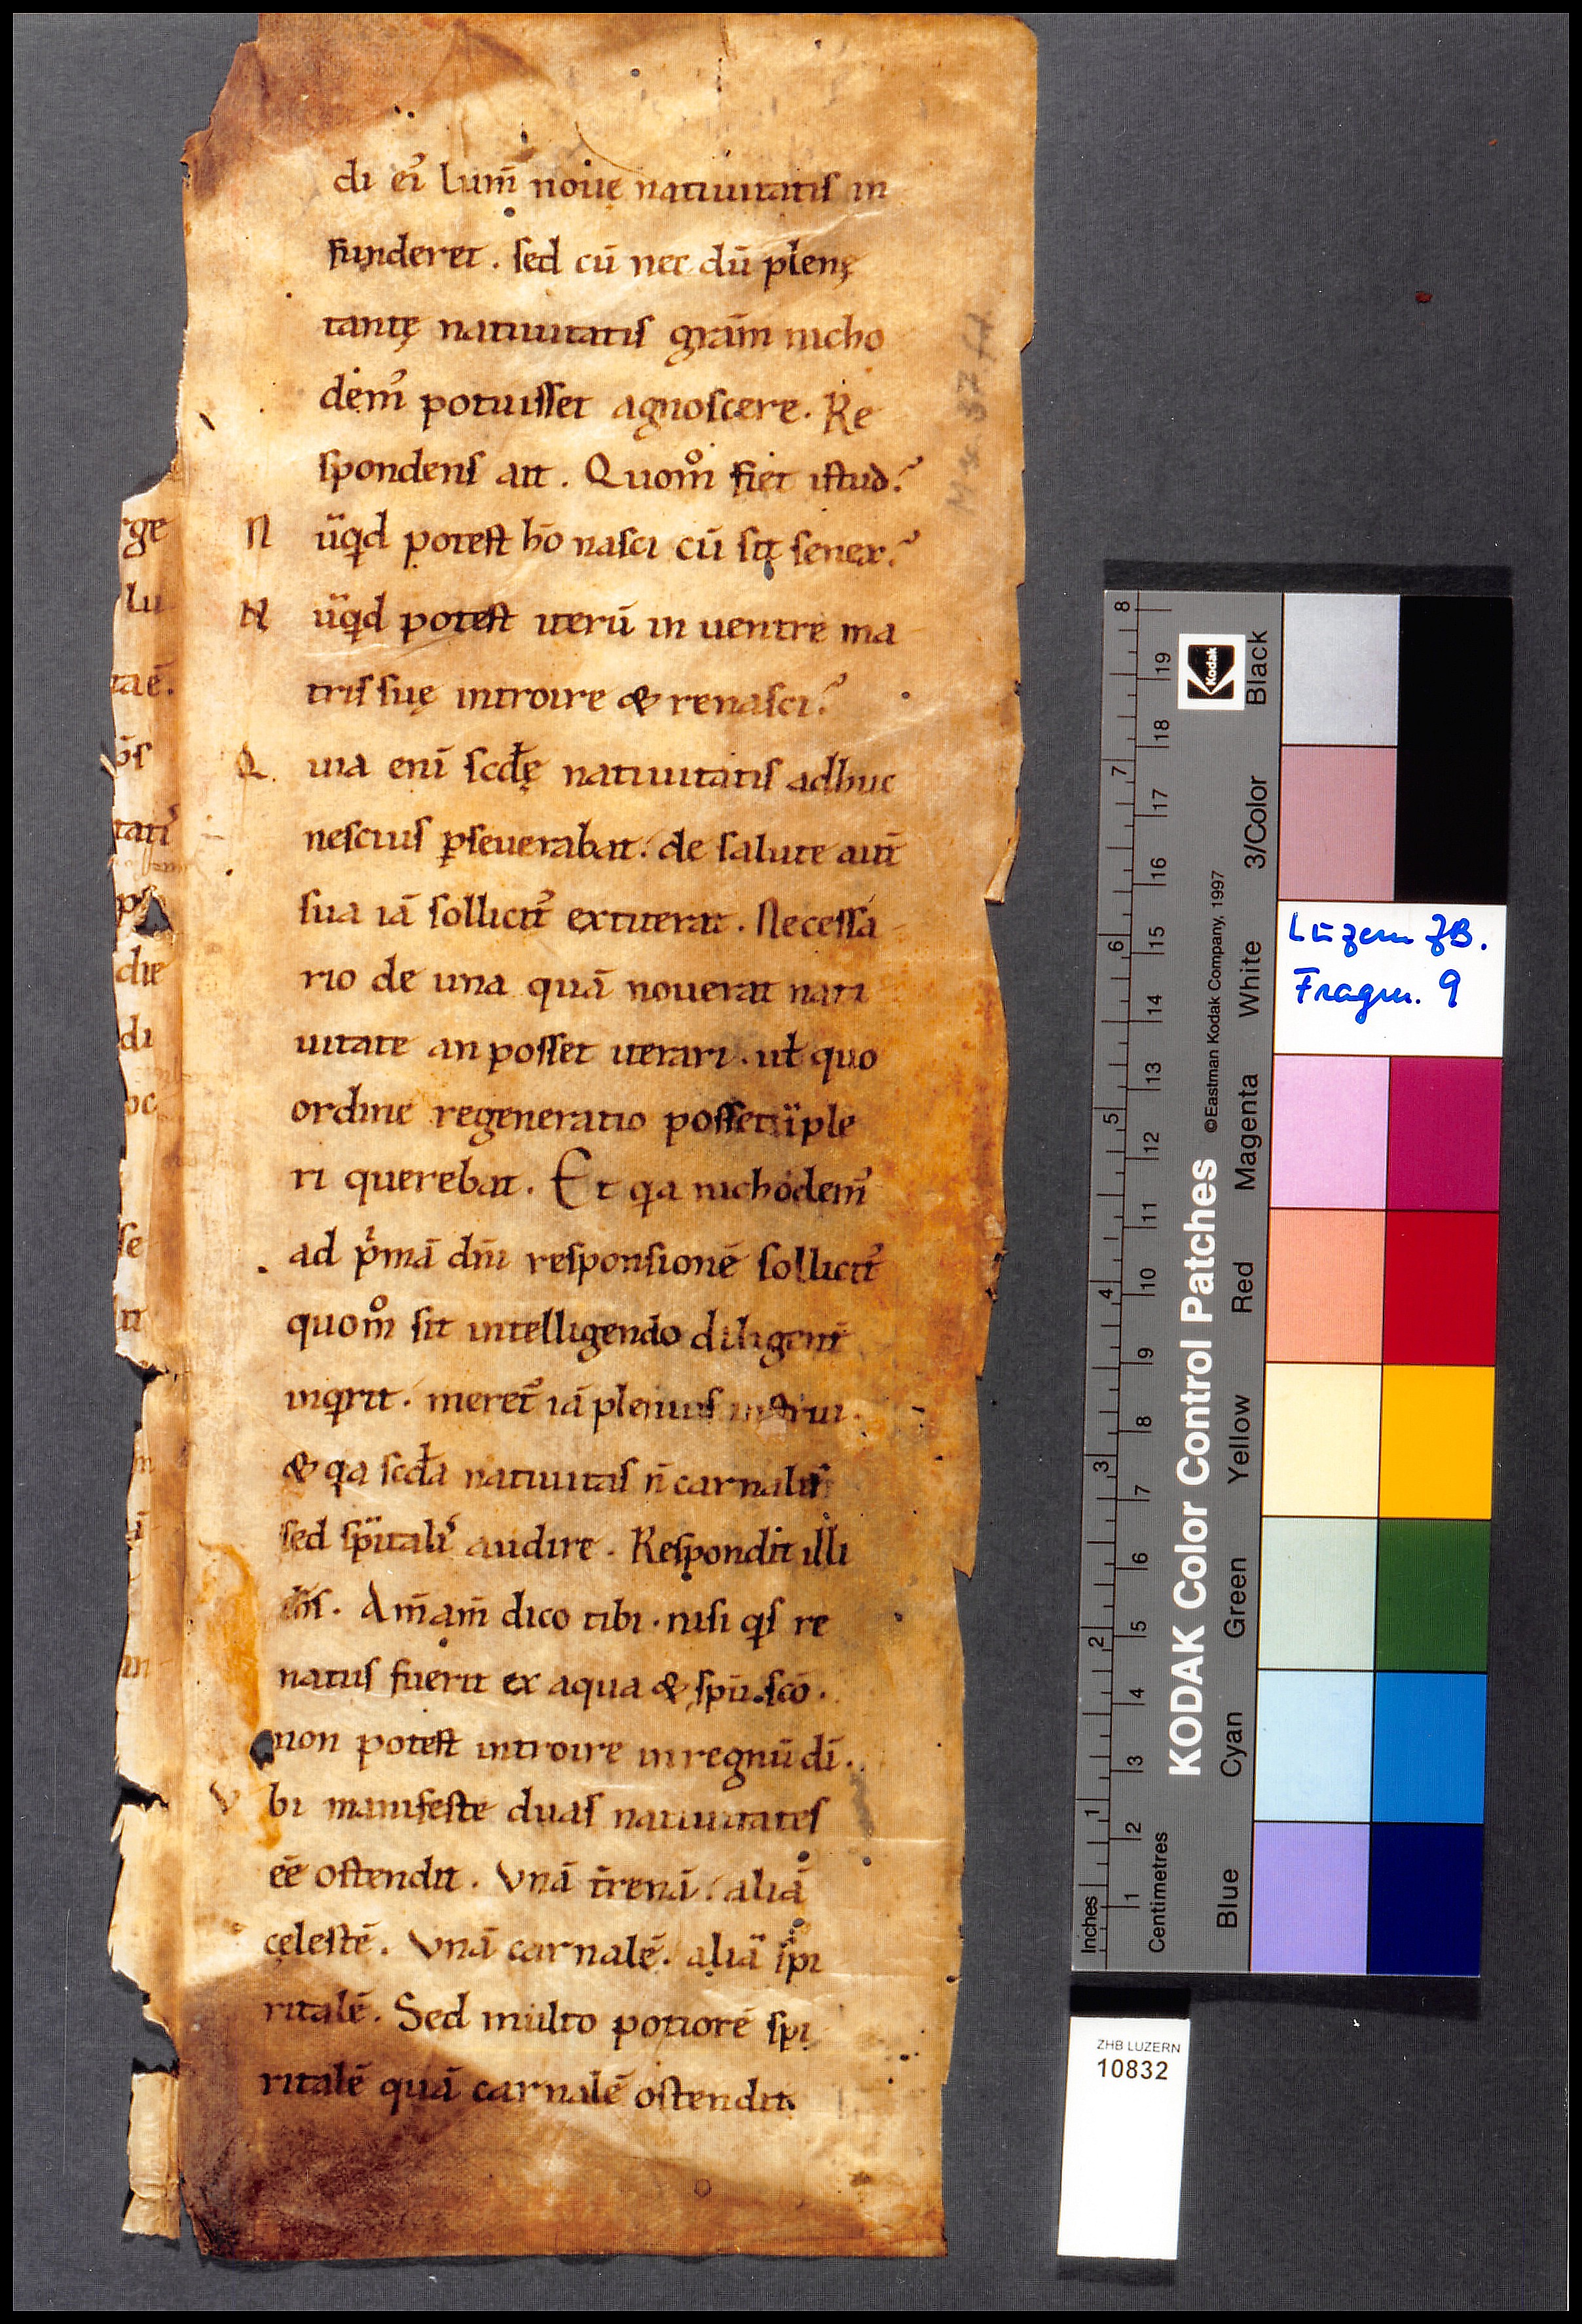 di ei᷒ lum̄ noue natiuitatis in
funderet. sed cū nec dū plenę
tantę natiuitatis grām nicho
dem᷒ potuisset agnoscere. Re
spondens ait. Quom̊ fiet istud?
N ūqd potest hō nasci cū sit senex?
N ūqd potest iterū in uentre ma
tris suę introire & renasci?
Q uia eni scdę natiuitatis adhuc
nescius ꝑseuerabat. de salute aut̄
sua iā sollicit᷒ extiterat. Necessa
rio de una quā nouerat nati
uitate an posset iterari. ut quo
ordine regeneratio posset īple
ri querebat. Et qa nichodem᷒
ad pͥmā dn̄i responsionē sollicit᷒
quom̊ sit intelligendo diligent̄
inqrit. meret᷒ iā plenius instrui.
& qa scda natiuitas n̄ carnalis
sed spūitali᷒ audire. Respondit illi
ih̄s. Am̄ am̄ dico tibi. nisi qs re
natus fuerit ex aqua & spū sco.
non potest introire in regnū dī.
V bi manifeste duas natiuitates
eē ostendit. Vnā t̄renā. aliā
cęlestē. Vnā carnalē. aliā spi
ritalē. Sed multo potiorē spi
ritalē quā carnalē ostendit.
ge
lu
taē.
tati᷒
die
di
se
it
Luzern ZB.
Fragm. 9
KODAK Color Control Patches
© Eastman Kodak Company, 1997
Kodak
Inches 1 2 3 4 5 6 7 8
Centimetres 1 2 3 4 5 6 7 8 9 10 11 12 13 14 15 16 17 18 19
Blue Cyan Green Yellow Red Magenta White 3/Color Black
ZHB LUZERN
10832